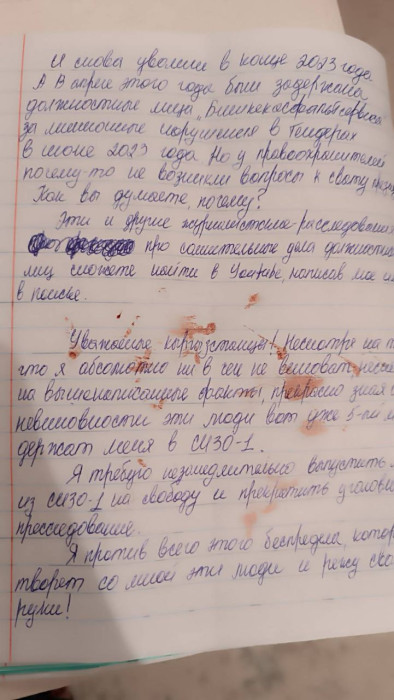 И снова уволили в конце 2023 года.
А в апреле этого года были задержаны
должностные лица "Бишкекасфальтсервиса"
за миллионные нарушения в тендерах
в июне 2023 года. Но у правоохранителей
почему-то не возникли вопросы к
Как вы думаете, почему?
Эти и другие журналистские расследования
про сомнительные дела должностных
лиц сможете найти в YouTube, написав мое
в поиске.
Уважаемые кыргызстанцы! Несмотря на
что я абсолютно ни в чем не виноват,
на вышенаписанные факты, прекрасно зная
невиновности эти люди вот уже 5-ый
держат меня в СИЗО-1.
Я требую незамедлительно выпустить
из СИЗО-1 на свободу и прекратить
прессledование.
Я против всего этого беспредела,
творят со мной эти люди и режу
руки!